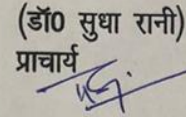 (डॉ0 सुधा रानी)
प्राचार्य